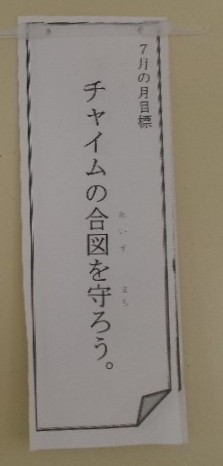 7月の月目標
チャイムの合図を守ろう。